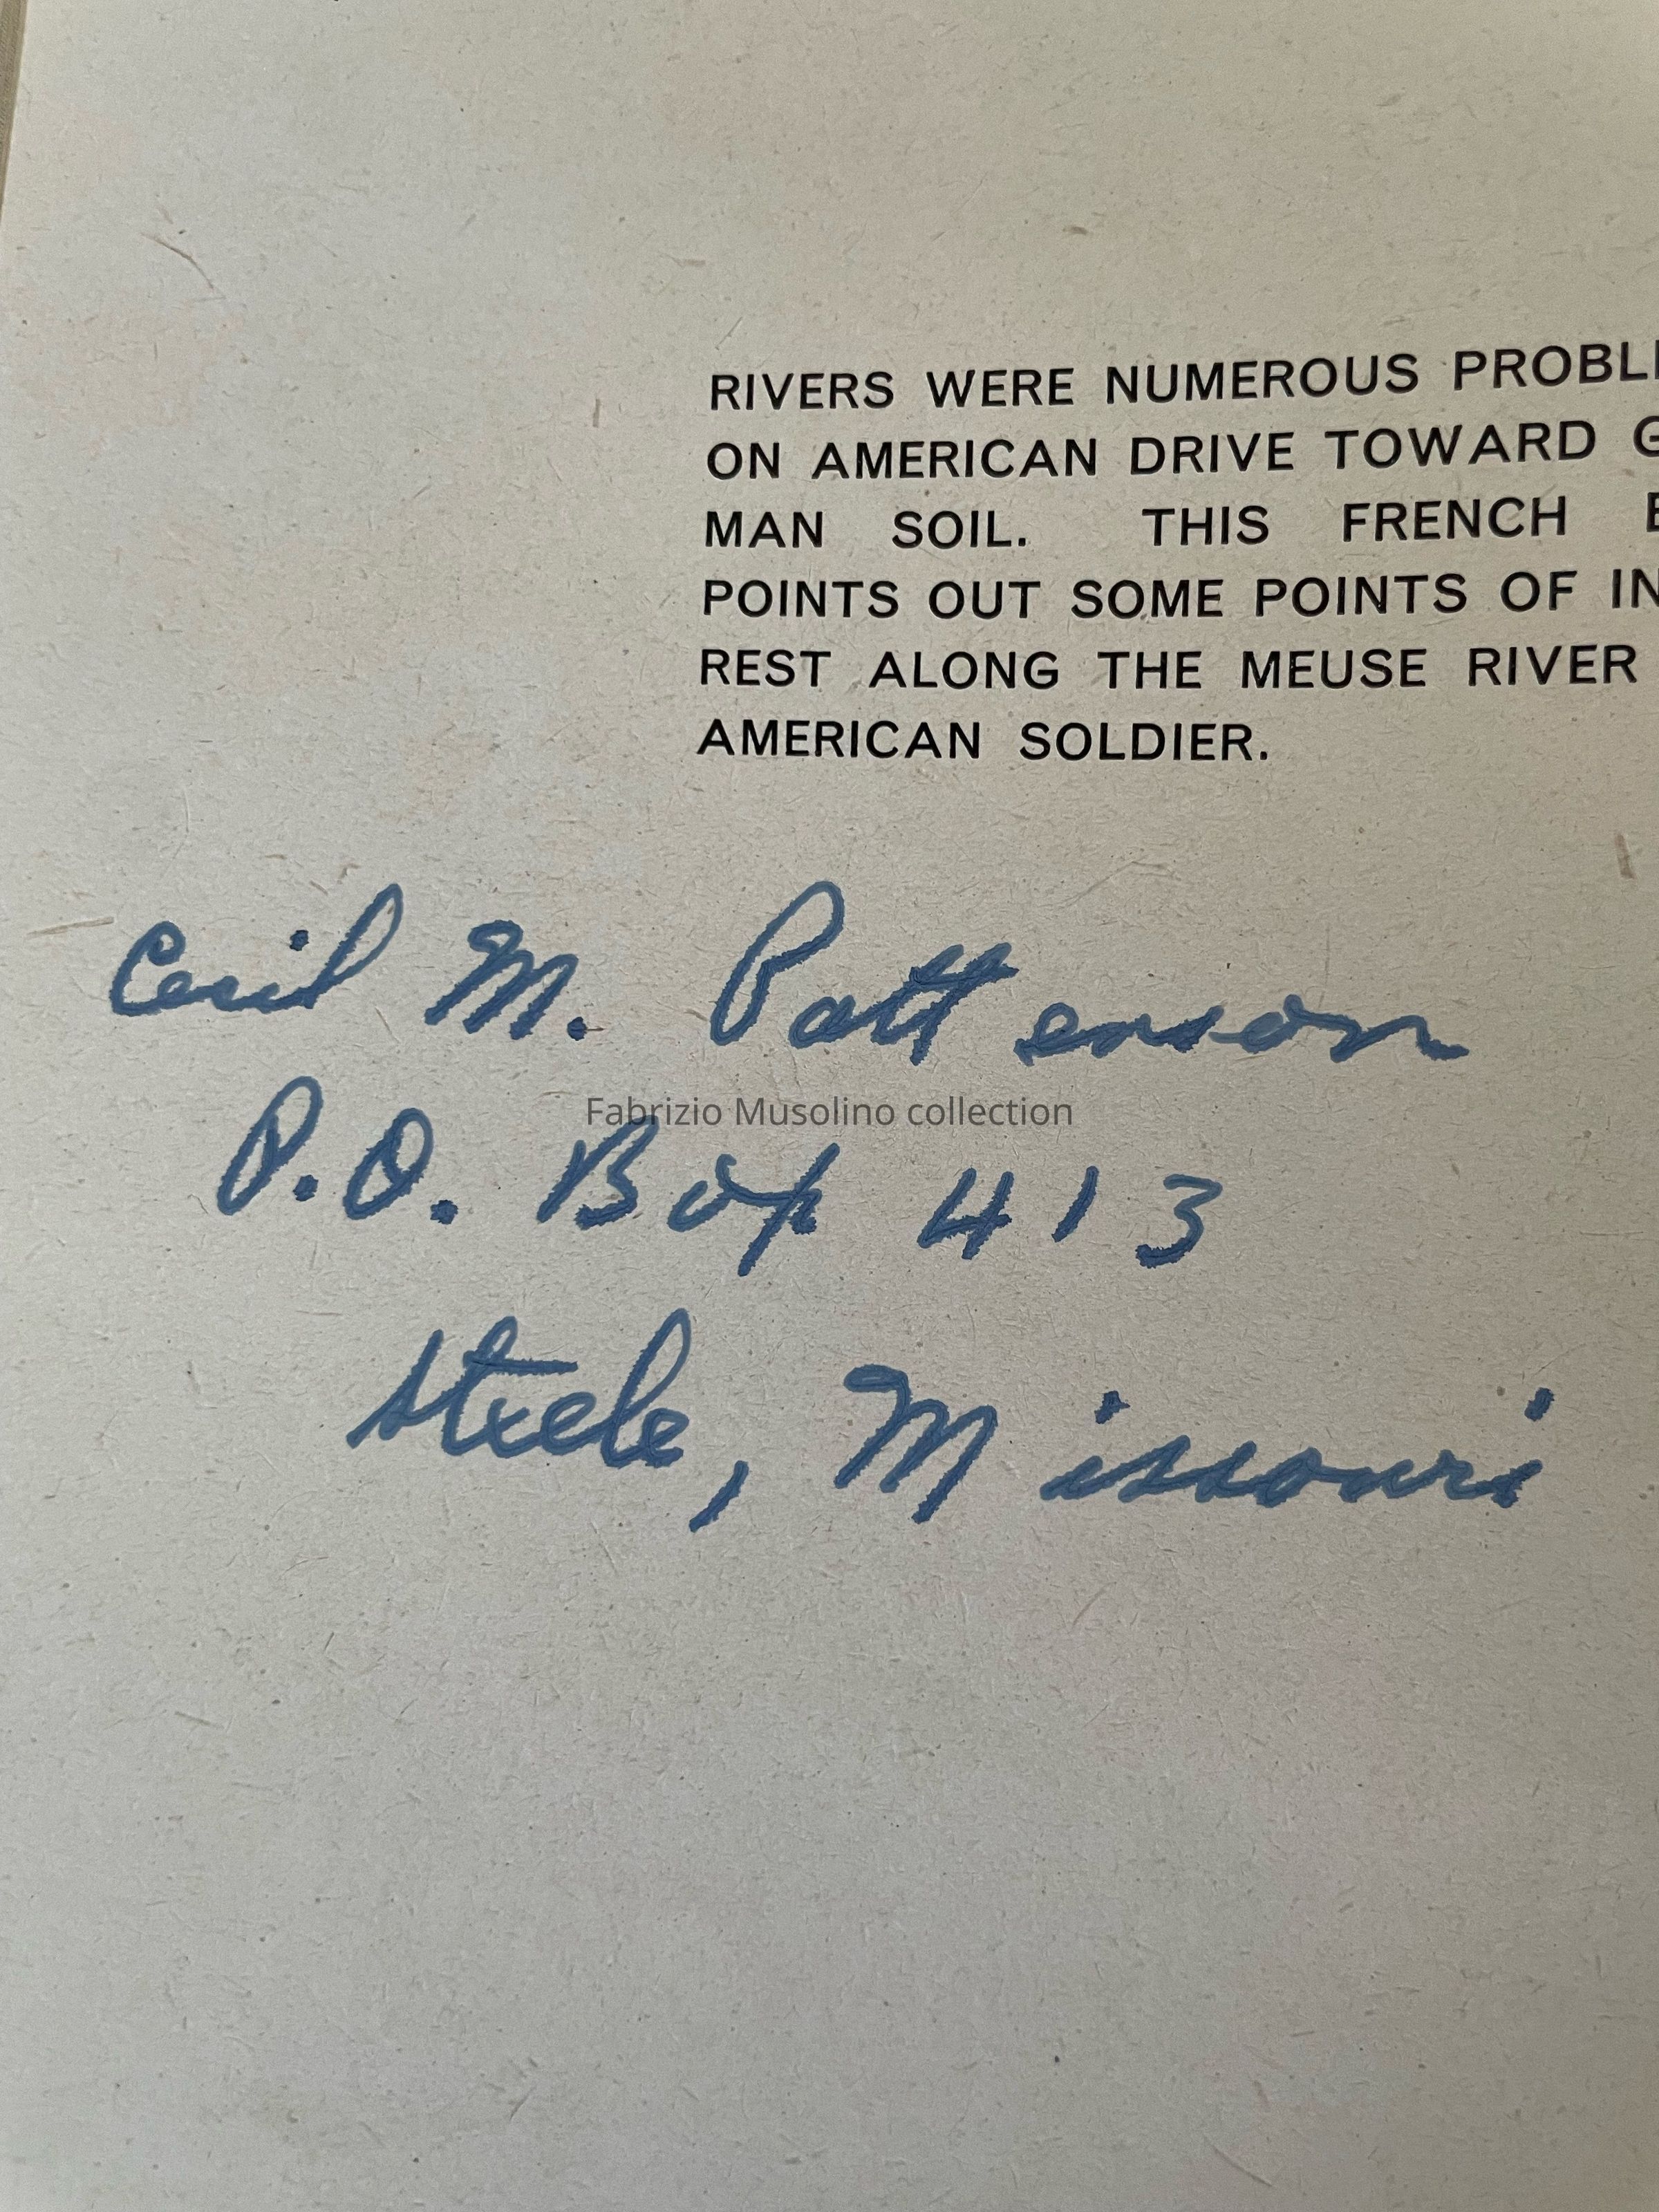 RIVERS WERE NUMEROUS PROBL
ON AMERICAN DRIVE TOWARD G
MAN SOIL. THIS FRENCH B
POINTS OUT SOME POINTS OF IN
REST ALONG THE MEUSE RIVER
AMERICAN SOLDIER.
Cecil M. Patterson
Fabrizio Musolino collection
P.O. Box 413
Steele, Missouri